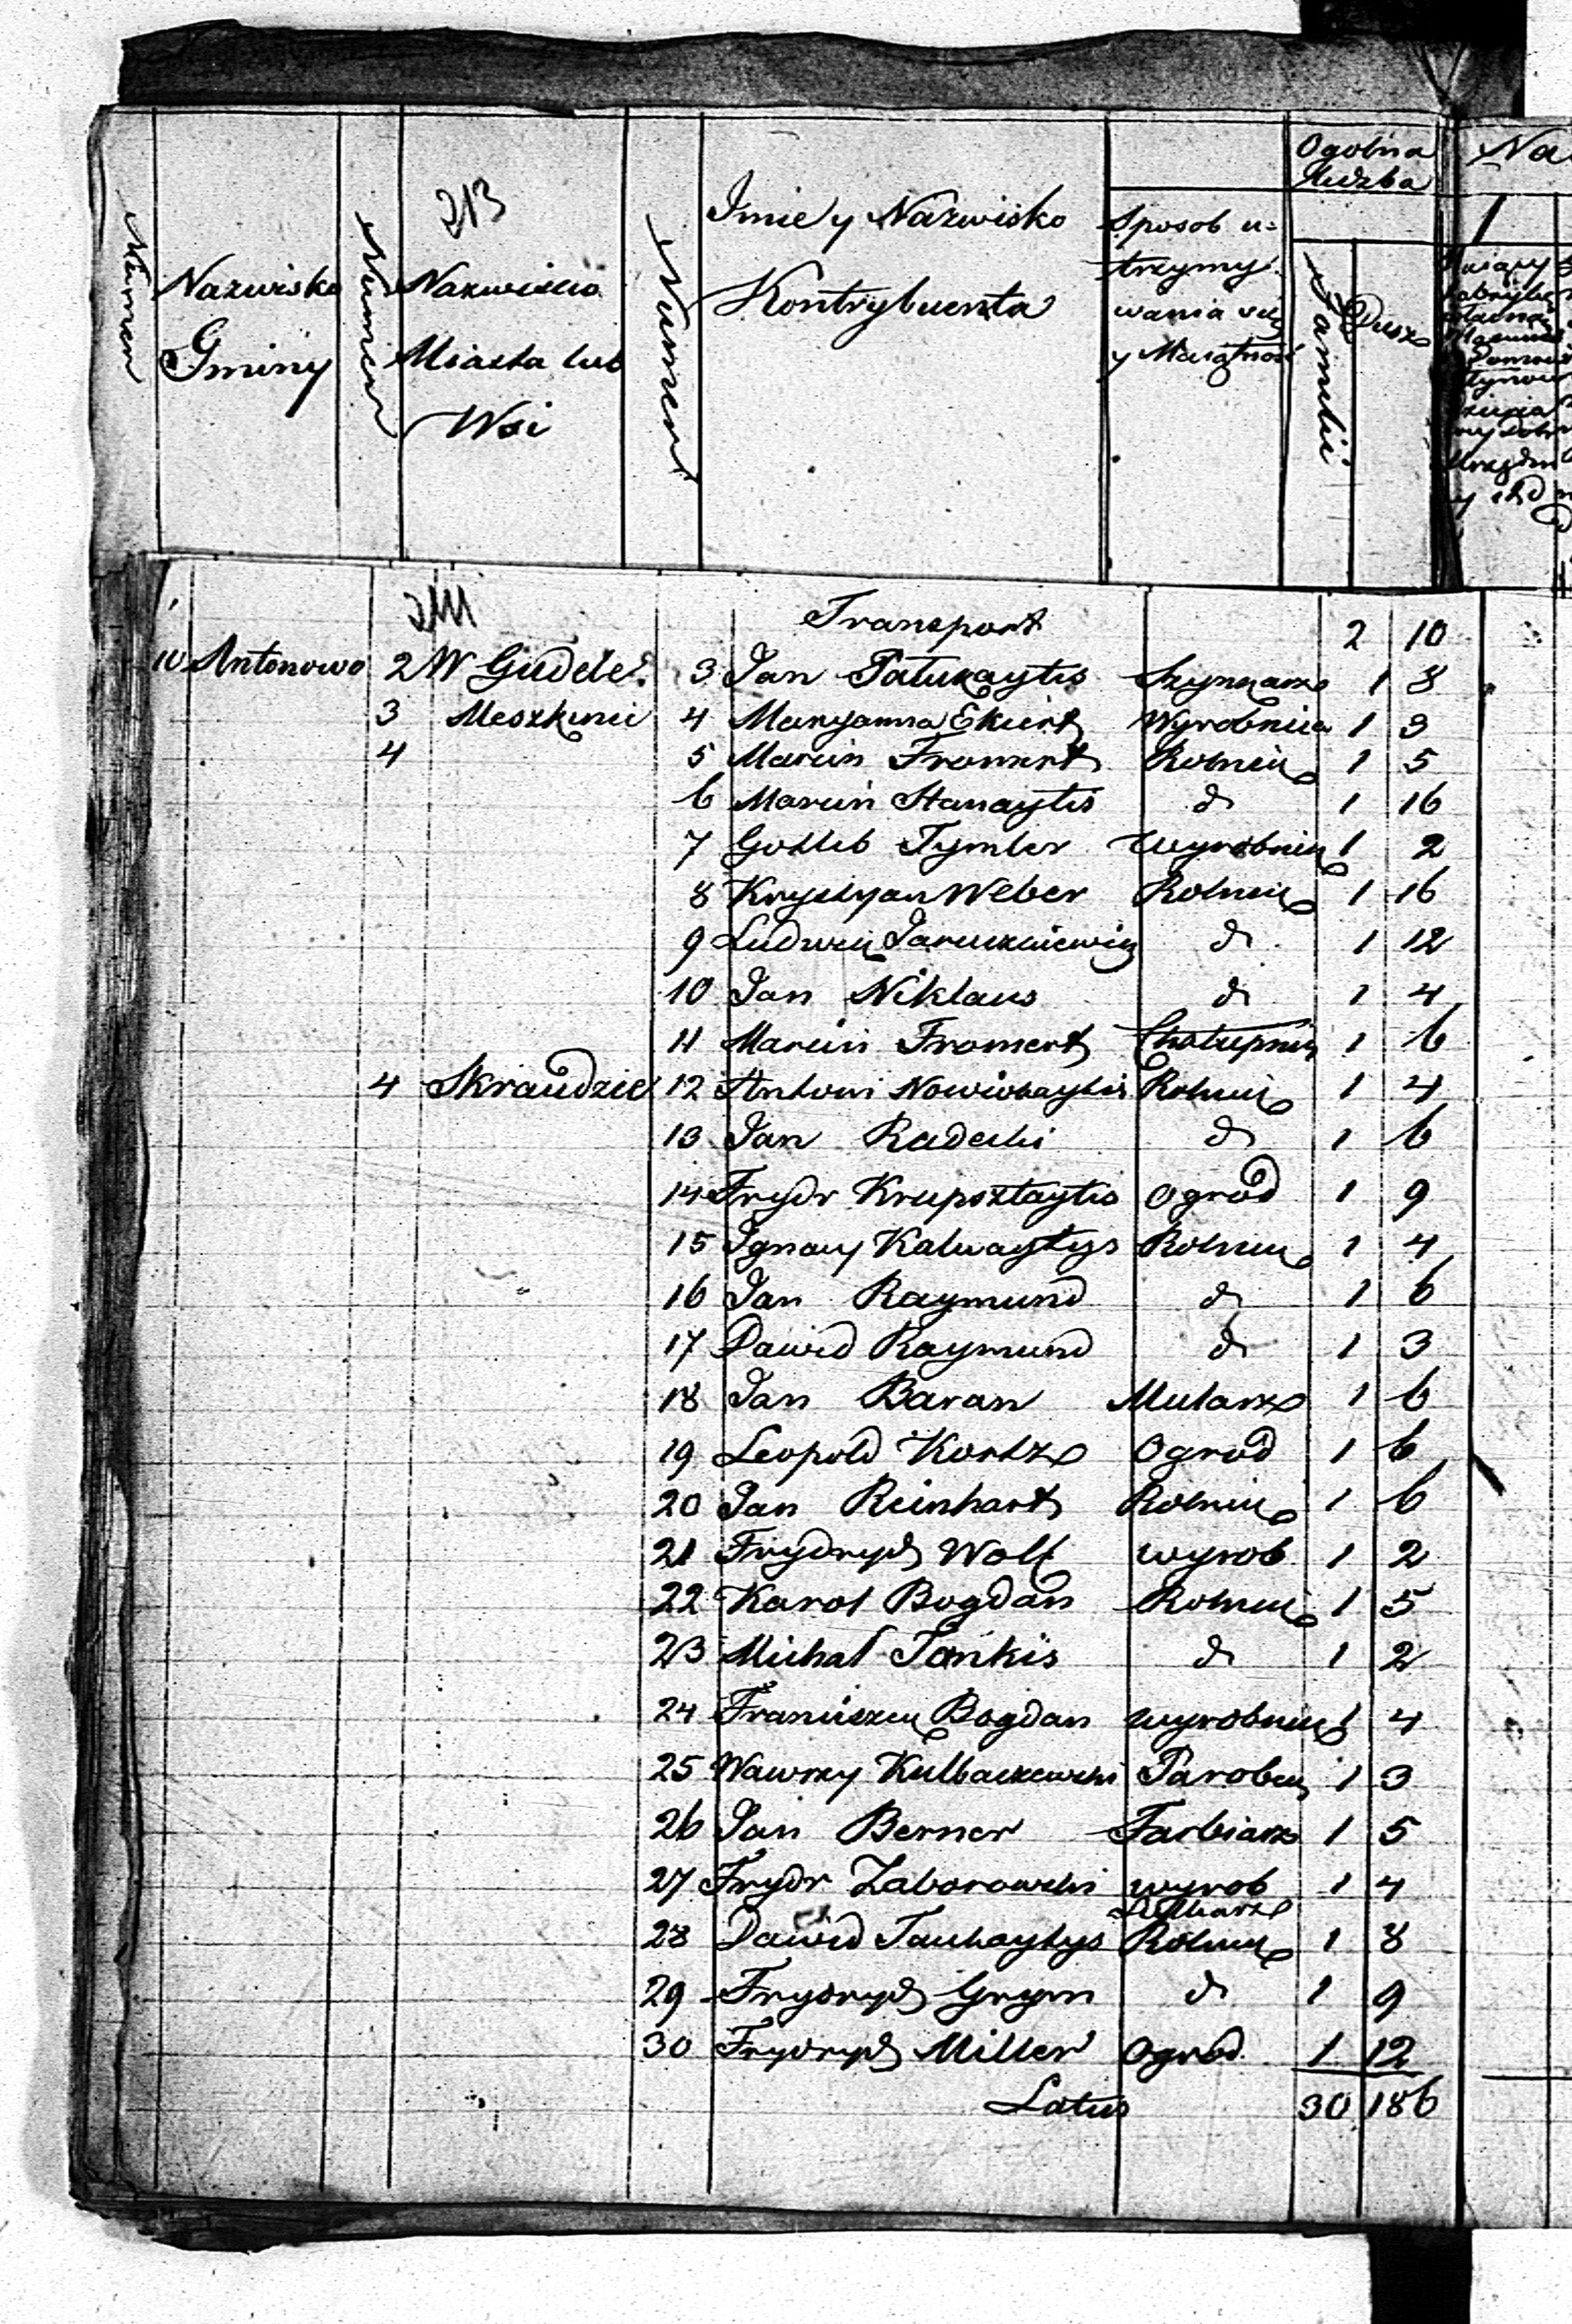 213
Numer
Nazwisko Gminy
Numer
Nazwisko Miasta lub Wsi
Numer
Imie y Nazwisko Kontrybuenta
Sposob u=
trzymy
wania się
y Maiątność
Ogolna
liczba
Familii
Dusz
Transport 2 10
10 Antonowo 2 W Gudele 3 Jan Patukaytis Szynkarz 1 8
3 Meszkinie 4 Maryanna Ekiert Wyrobnica 1 3
4 5 Marcin Fromert Rolnik 1 5
6 Marcin Stanaytis d 1 16
7 Gotlib Tymler Wyrobnik 1 2
8 Krystyan Weber Rolnik 1 16
9 Ludwik Jaruszniewicz d 1 12
10 Jan Niklaus d 1 4
11 Marcin Fromert Chałupnik 1 6
4 Skraudzie 12 Antoni Nowiokaytis Rolnik 1 4
13 Jan Radecki d 1 6
14 Frydr Krupsztaytis Ogrod 1 9
15 Ignacy Kalwaytys Rolnik 1 4
16 Jan Raymund d 1 6
17 Dawid Raymund d 1 3
18 Jan Baran Mularz 1 6
19 Leopold Kortz Ogrod 1 6
20 Jan Reinhart Rolnik 1 6
21 Frydrych Wolf wyrob 1 2
22 Karol Bogdan Rolnik 1 5
23 Michał Jankis d 1 2
24 Franciszek Bogdan wyrobnik 1 4
25 Wawrzy Kulbaczewski Parobek 1 3
26 Jan Berner Farbiarz 1 5
27 Frydr Zaborowski wyrob 1 4
28 Dawid Rolnik 1 8
29 Frydrych Grym d 1 9
30 Frydrych Miller Ogrod 1 12
Latus 30 186